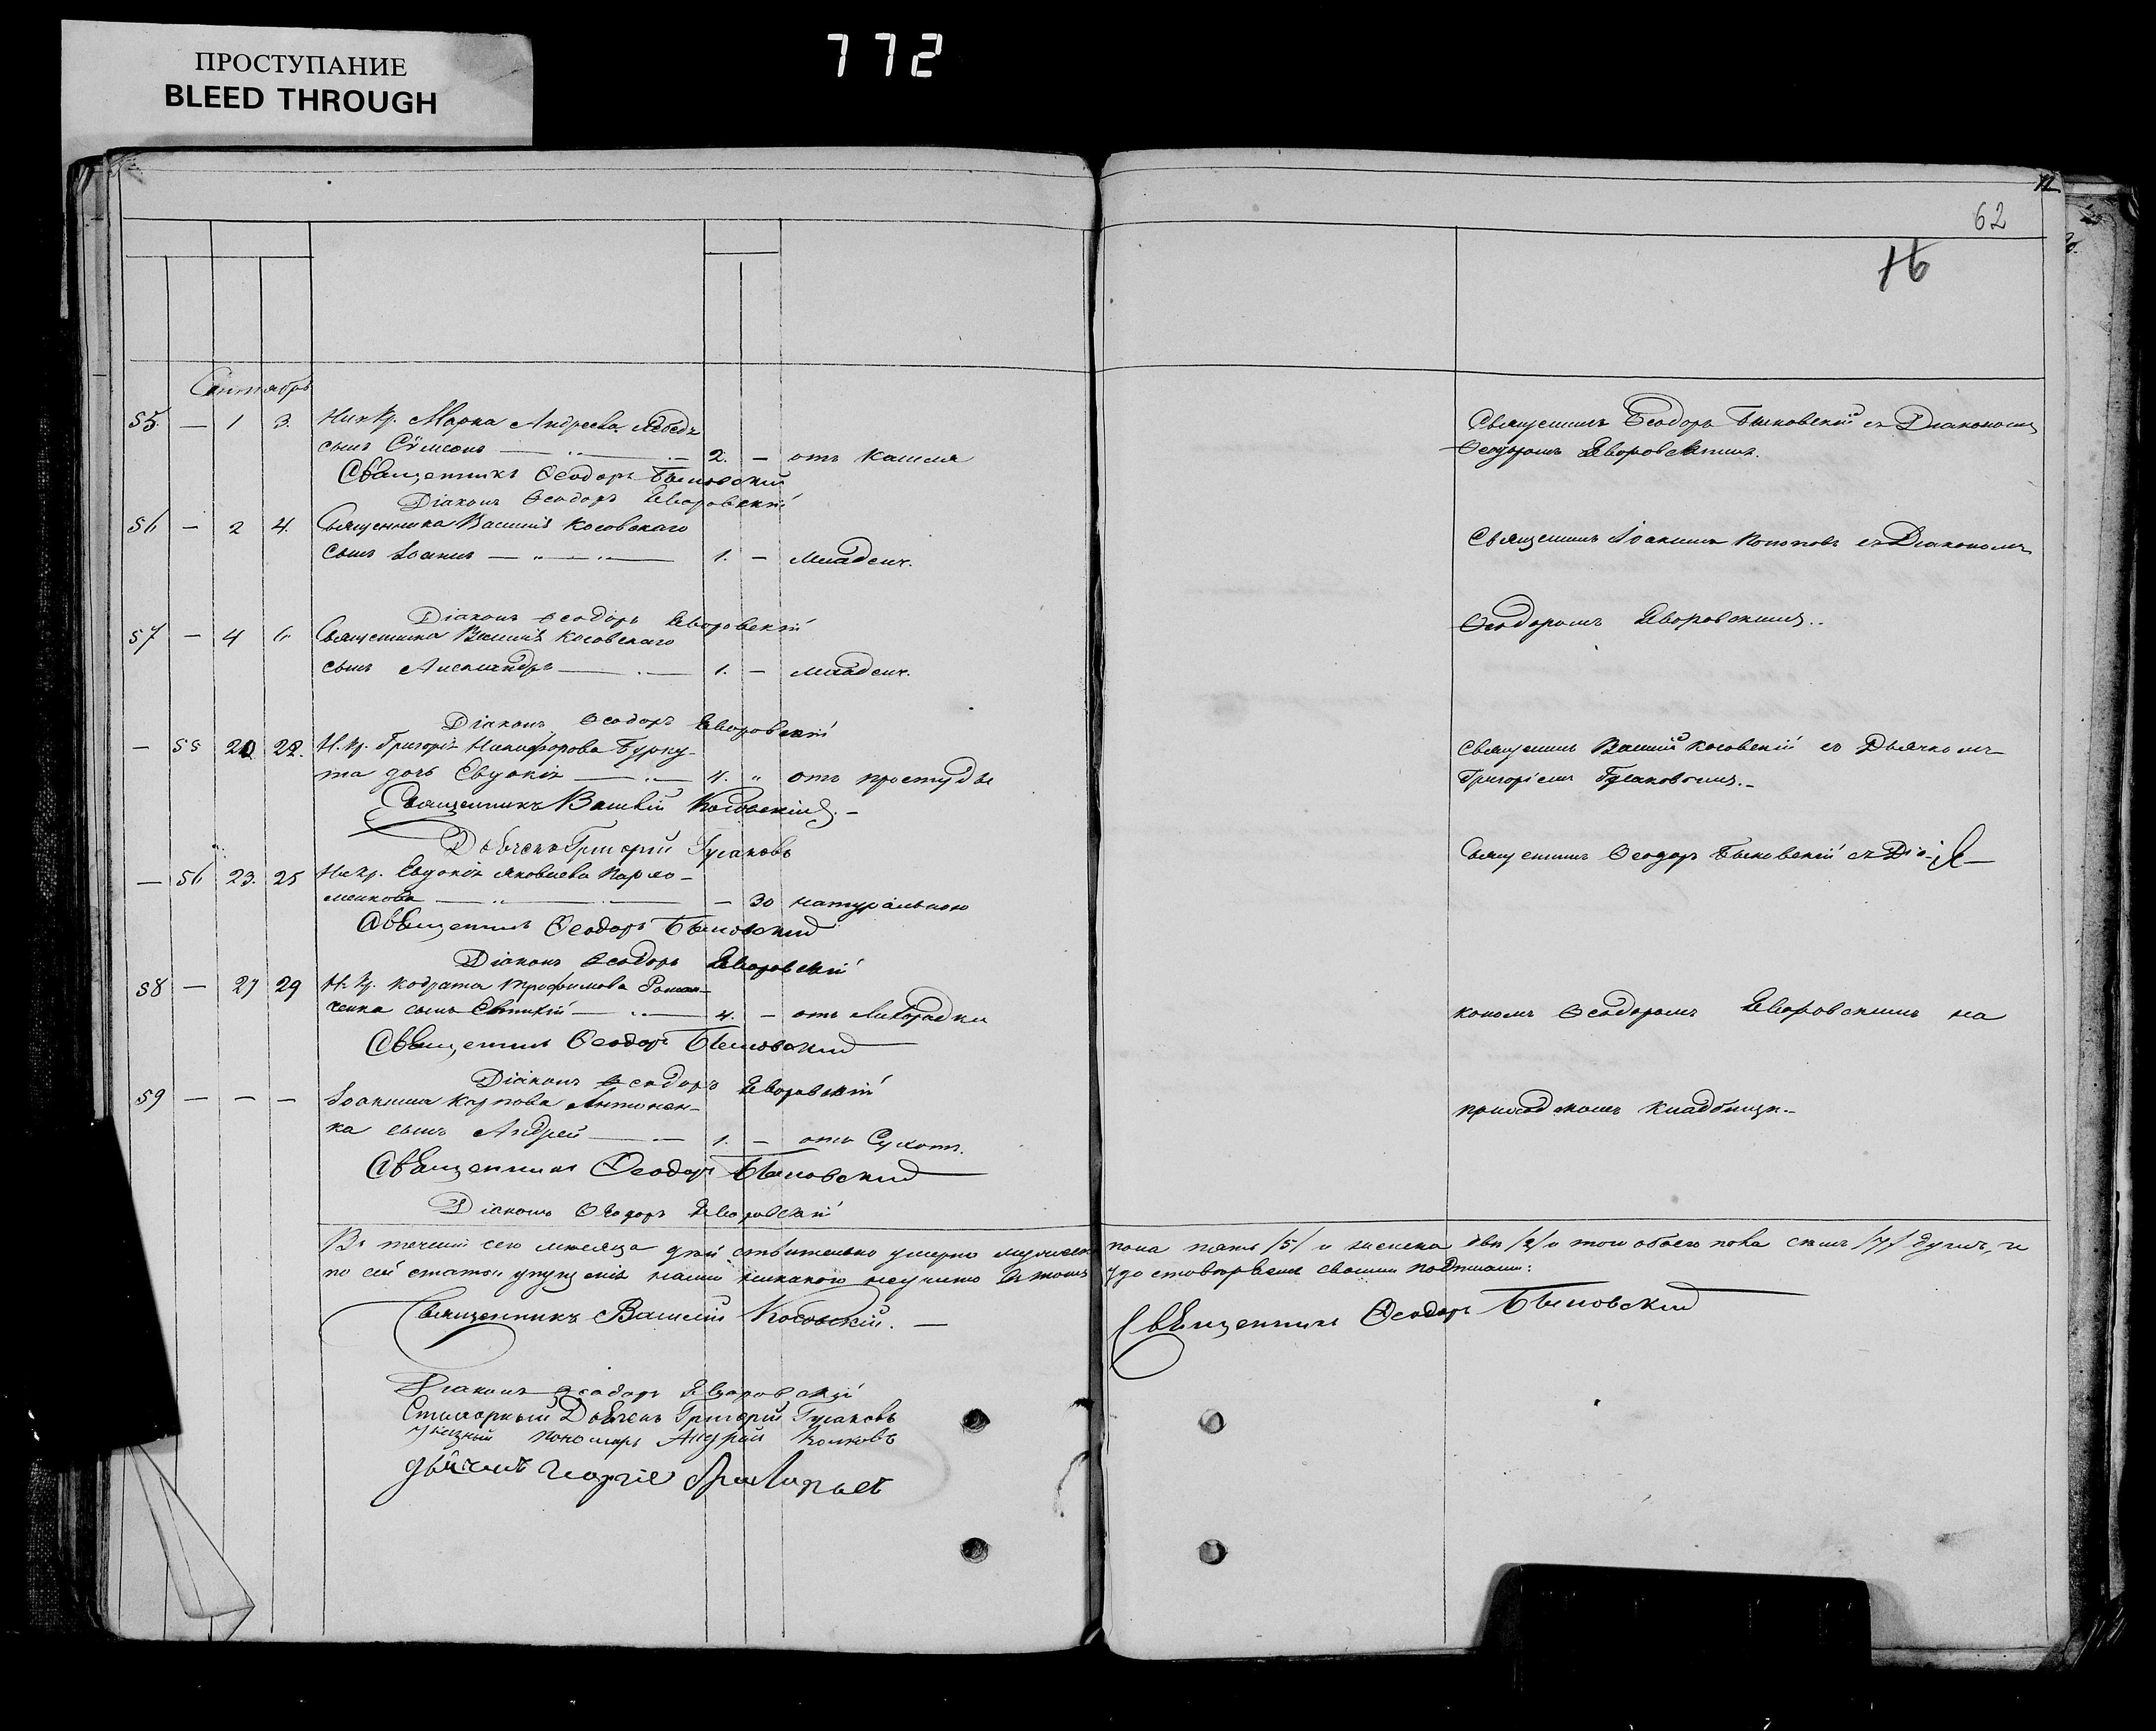 ПРОСТУПАНИЕ
BLEED THROUGH
772
12
62
16
Сентябрь
55. — 1 3. Марка Андреева
сынъ Сѵмеонъ — 2. — отъ кашля
Священникъ Ѳеодоръ Быковский
Діаконъ Ѳеодоръ Яворовскій
56 — 2 4. Священника Василія Косовскаго
сынъ Іоаннъ — 1. — Младенч.
Діаконъ Ѳеодоръ Яворовскій
57 — 4 6 Священника Василія Косовскаго
сынъ Александръ — 1. — младенч.
Діаконъ Ѳеодоръ Яворовскій
— 55 20 22. Н. Кр. Григорія Никифорова Бурку-
та дочь Евдокія — 4. " отъ простуды
Священникъ Василій Косовскій. —
Дьячекъ Григорій Гусаковъ
— 56 23. 25 Евдокія Яковлева
— 30 натурально
Священникъ Ѳеодоръ Быковский
Діаконъ Ѳеодоръ Яворовскій
58 — 27 29 Н. Кр. Кодрата Трофимова Роман-
ченка сынъ — 4. — отъ лихорадки
Священникъ Ѳеодоръ Быковский
Діаконъ Ѳеодоръ Яворовскій
59 — — — Іоакима Карпова Антонен-
ка сынъ Андрей — 1. — отъ Сухотъ.
Священникъ Ѳеодоръ Быковский
Діаконъ Ѳеодоръ Яворовскій
Священникъ Ѳеодоръ Быковскій съ Діакономъ
Ѳеодоромъ Яворовскимъ.
Священникъ Іоакимъ съ Діакономъ
Ѳеодоромъ Яворовскимъ..
Священникъ Василій Косовскій съ Дьячкомъ
Григоріемъ Гусаковымъ. —
Священникъ Ѳеодоръ Быковскій съ Діа-
кономъ Ѳеодоромъ Яворовскимъ на
приходскомъ кладбищѣ. —
Въ теченіи сего мѣсяца дѣйствительно умерло мужеска пола пять /5/ и женска двѣ /2/ а того обоего пола семь /7/ душъ, и
по сей статьи упущенія нами никакого неучинено въ томъ удостовѣряемъ своими подписами:
Священникъ Василій Косовскій. —
Священникъ Ѳеодоръ Быковский
Діаконъ Ѳеодоръ Яворовскій
Дьячекъ Григорій Гусаковъ
пономарь Андрей